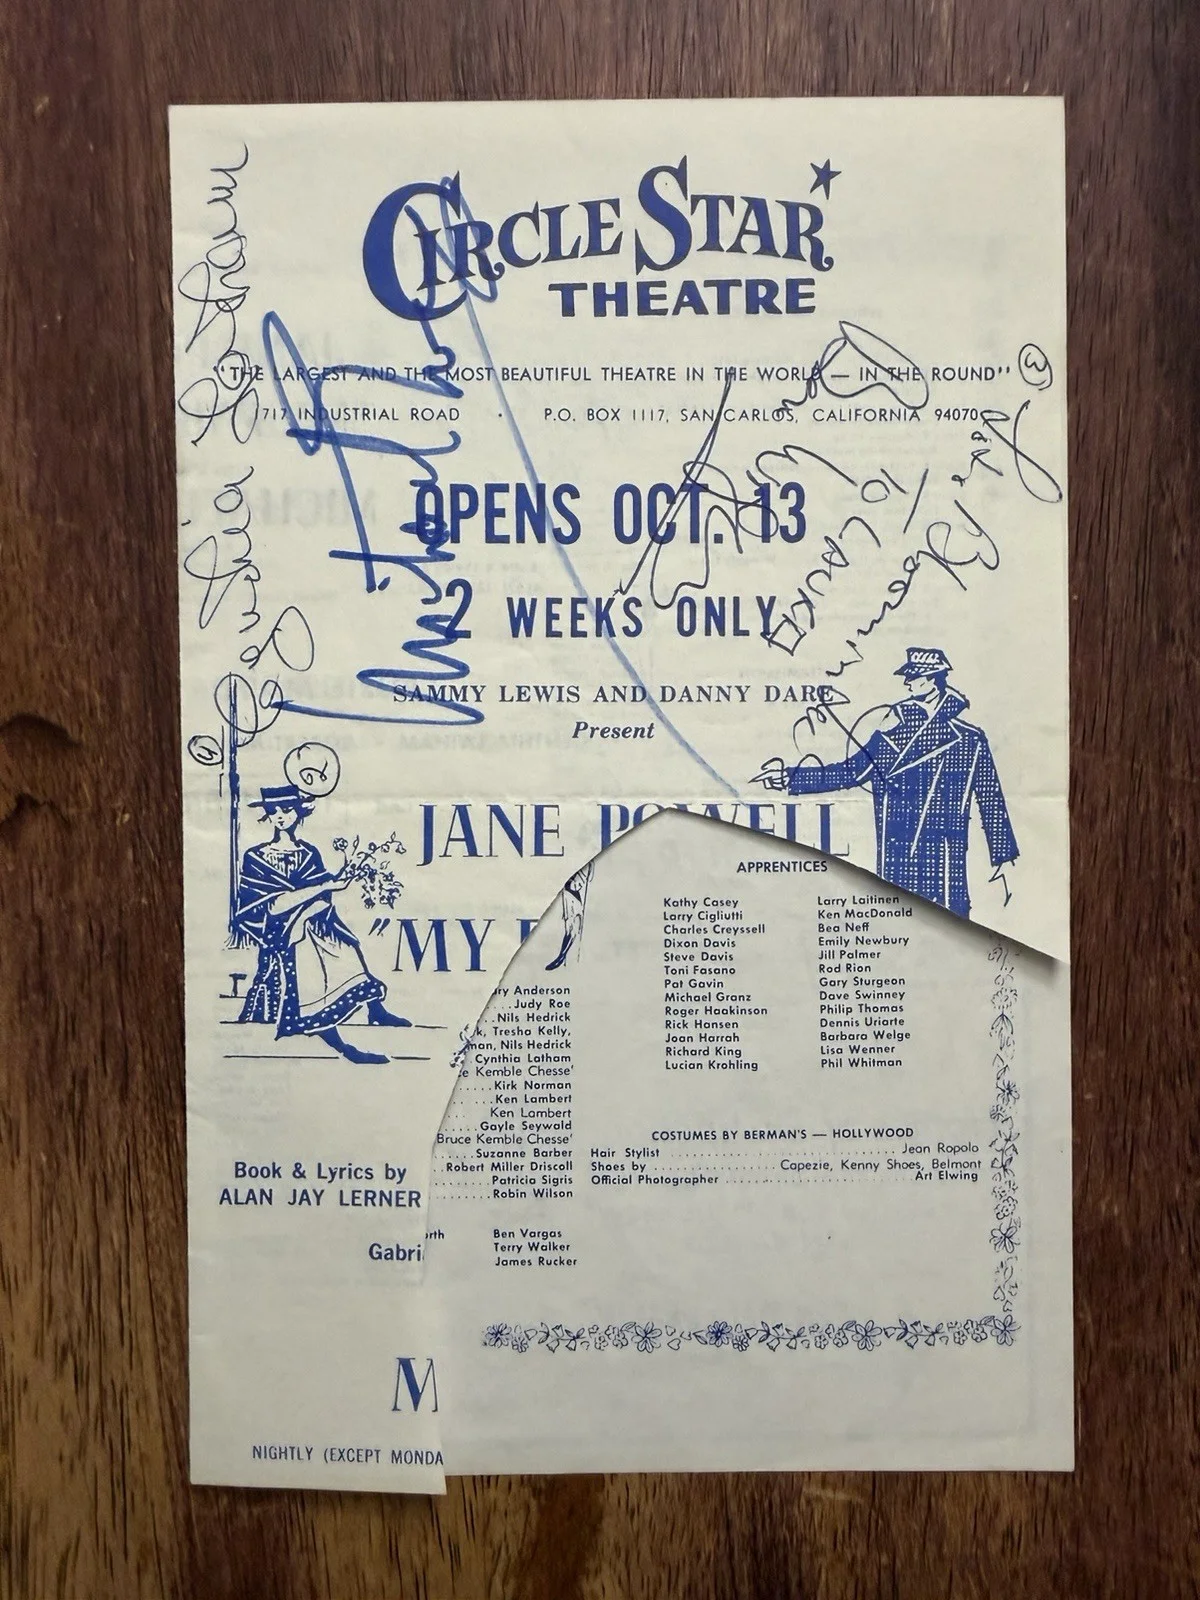 CIRCLE STAR
THEATRE
"THE LARGEST AND THE MOST BEAUTIFUL THEATRE IN THE WORLD — IN THE ROUND"
1717 INDUSTRIAL ROAD · P.O. BOX 1117, SAN CARLOS, CALIFORNIA 94070
OPENS OCT. 13
2 WEEKS ONLY
SAMMY LEWIS AND DANNY DARE
Present
JANE POWELL
"MY F
Book & Lyrics by
ALAN JAY LERNER
Gabri
M
NIGHTLY (EXCEPT MONDA
ry Anderson
Judy Roe
Nils Hedrick
k, Tresha Kelly,
man, Nils Hedrick
Cynthia Latham
ce Kemble Chesse'
Kirk Norman
Ken Lambert
Ken Lambert
Gayle Seywald
Bruce Kemble Chesse'
Suzanne Barber
Robert Miller Driscoll
Patricia Sigris
Robin Wilson
orth Ben Vargas
Terry Walker
James Rucker
APPRENTICES
Kathy Casey
Larry Cigliutti
Charles Creyssell
Dixon Davis
Steve Davis
Toni Fasano
Pat Gavin
Michael Granz
Roger Haakinson
Rick Hansen
Joan Harrah
Richard King
Lucian Krohling
Larry Laitinen
Ken MacDonald
Bea Neff
Emily Newbury
Jill Palmer
Rod Rion
Gary Sturgeon
Dave Swinney
Philip Thomas
Dennis Uriarte
Barbara Welge
Lisa Wenner
Phil Whitman
COSTUMES BY BERMAN'S — HOLLYWOOD
Hair Stylist Jean Ropolo
Shoes by Capezie, Kenny Shoes, Belmont
Official Photographer Art Elwing
Cynthia Latham
Michael
To Laura
2
3
4